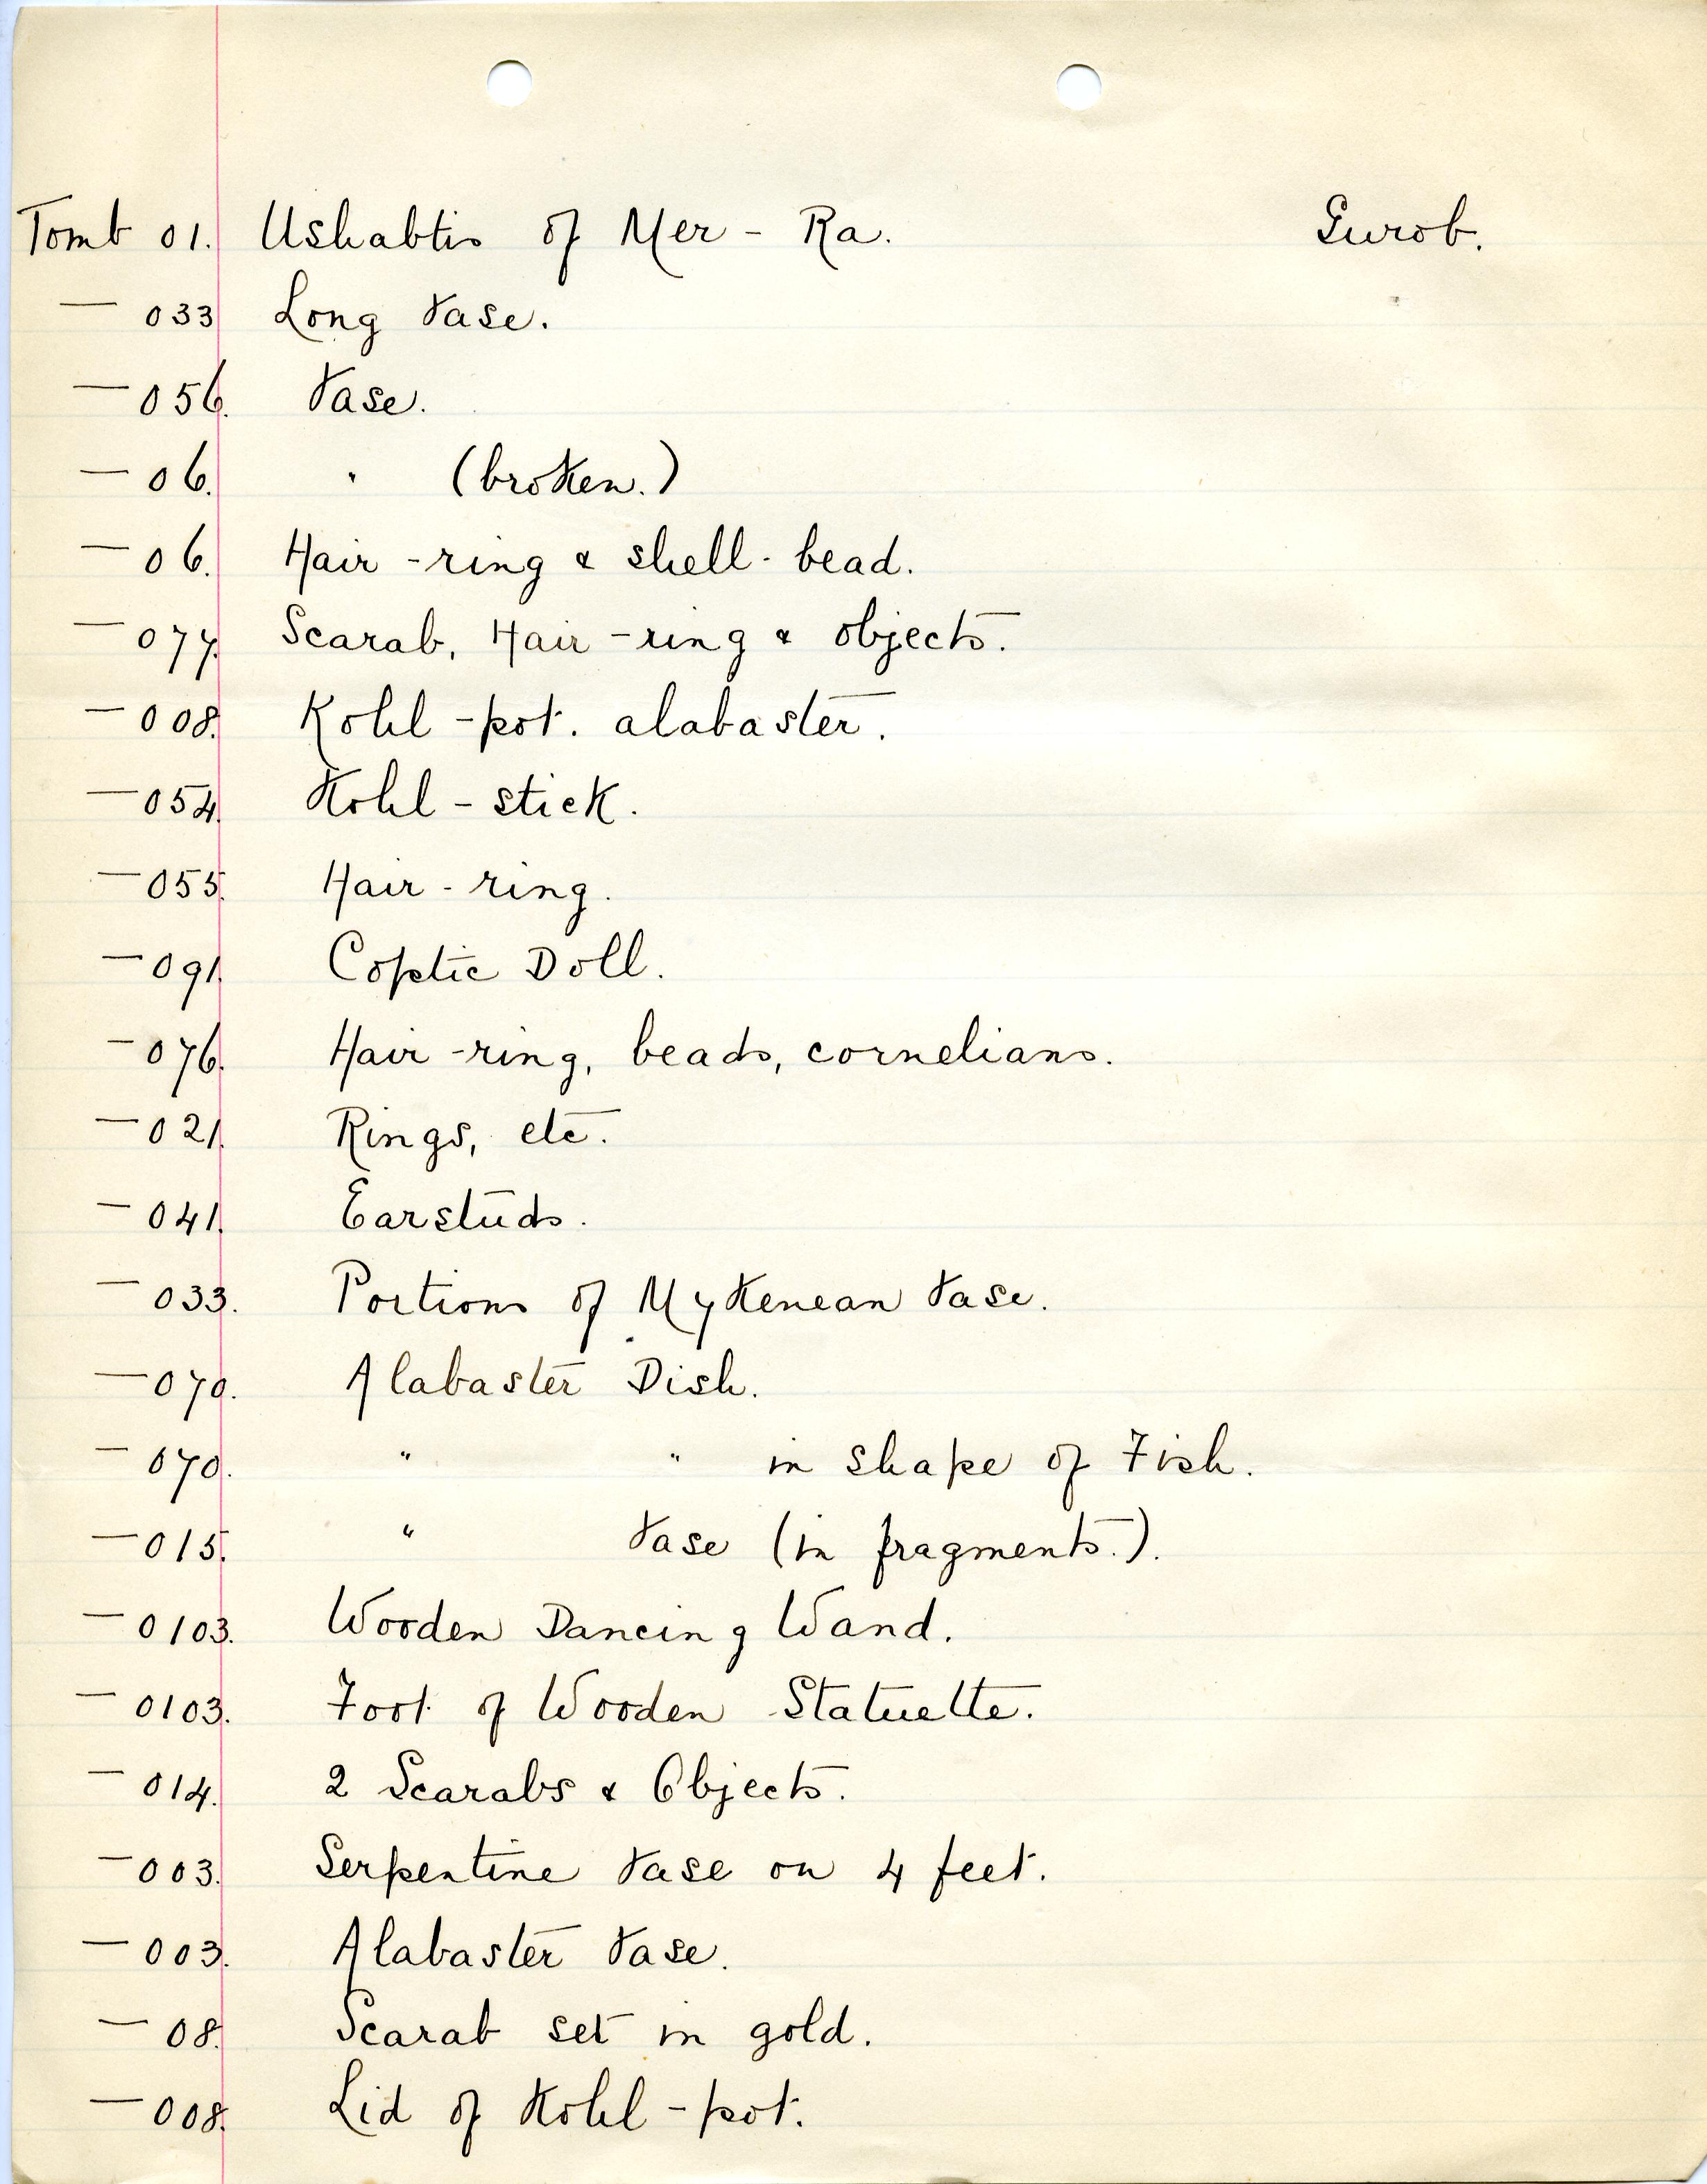 Tomb 01. Ushabtis of Mer - Ra. Gurob.
— 033 Long Vase.
— 056. Vase.
— 06. " (broken.)
— 06. Hair - ring & shell - bead.
— 077. Scarab, Hair - ring & objects.
— 008. Kohl - pot. alabaster.
— 054. Kohl - stick.
— 055. Hair - ring.
— 091. Coptic Doll.
— 076. Hair - ring, beads, cornelians.
— 021. Rings, etc.
— 041. Earstuds.
— 033. Portions of Mykenean Vase.
— 070. Alabaster Dish.
— 070. " " in shape of Fish.
— 015. " Vase (in fragments.).
— 0103. Wooden Dancing Wand.
— 0103. Foot of Wooden Statuette.
— 014. 2 Scarabs & Objects.
— 003. Serpentine Vase on 4 feet.
— 003. Alabaster Vase.
— 08. Scarab set in gold.
— 008. Lid of Kohl - pot.